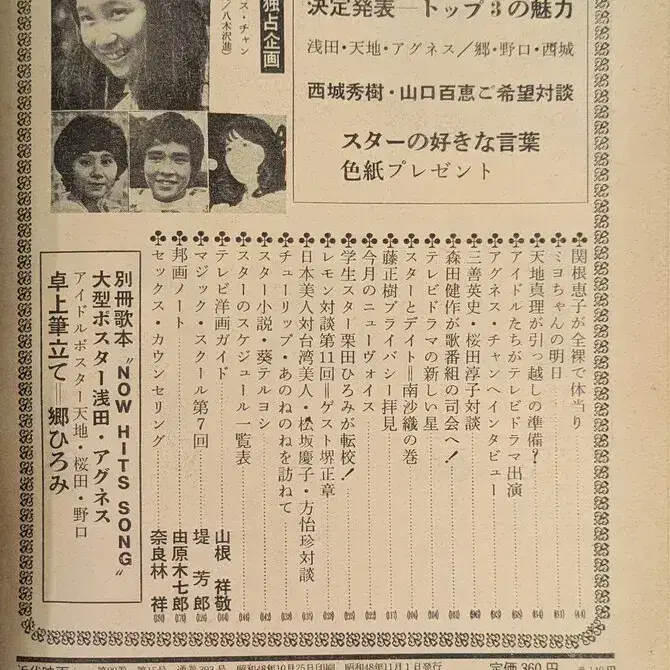 独占企画
ス・チャン
／八木沢進）
決定発表―トップ3の魅力
浅田・天地・アグネス／郷・野口・西城
西城秀樹・山口百恵ご希望対談
スターの好きな言葉
色紙プレゼント
♣関根恵子が全裸で体当り
♣ミヨちゃんの明日
♣天地真理が引っ越しの準備?
♣アイドルたちがテレビドラマ出演
♣アグネス・チャンへインタビュー
♣三善英史・桜田淳子対談
♣森田健作が歌番組の司会へ!
♣テレビドラマの新しい星
♣スターとデイト＝南沙織の巻
♣藤正樹プライバシー拝見
♣今月のニューヴォイス
♣学生スター栗田ひろみが転校!
♣レモン対談第11回＝ゲスト堺正章
♣日本美人対台湾美人・松坂慶子・方怡珍対談
♣チューリップ・あのねのねを訪ねて
♣スター小説・葵テルヨシ
♣スターのスケジュール一覧表
♣テレビ洋画ガイド 山根祥敬
♣マジック・スクール第7回 堤芳郎
♣邦画ノート 由原木七郎
♣セックス・カウンセリング 奈良林祥
別冊歌本"NOW HITS SONG"
大型ポスター浅田・アグネス
アイドルポスター天地・桜田・野口
卓上筆立て＝郷ひろみ
近代映画 昭和48年10月25日印刷 昭和48年11月1日発行 定価360円